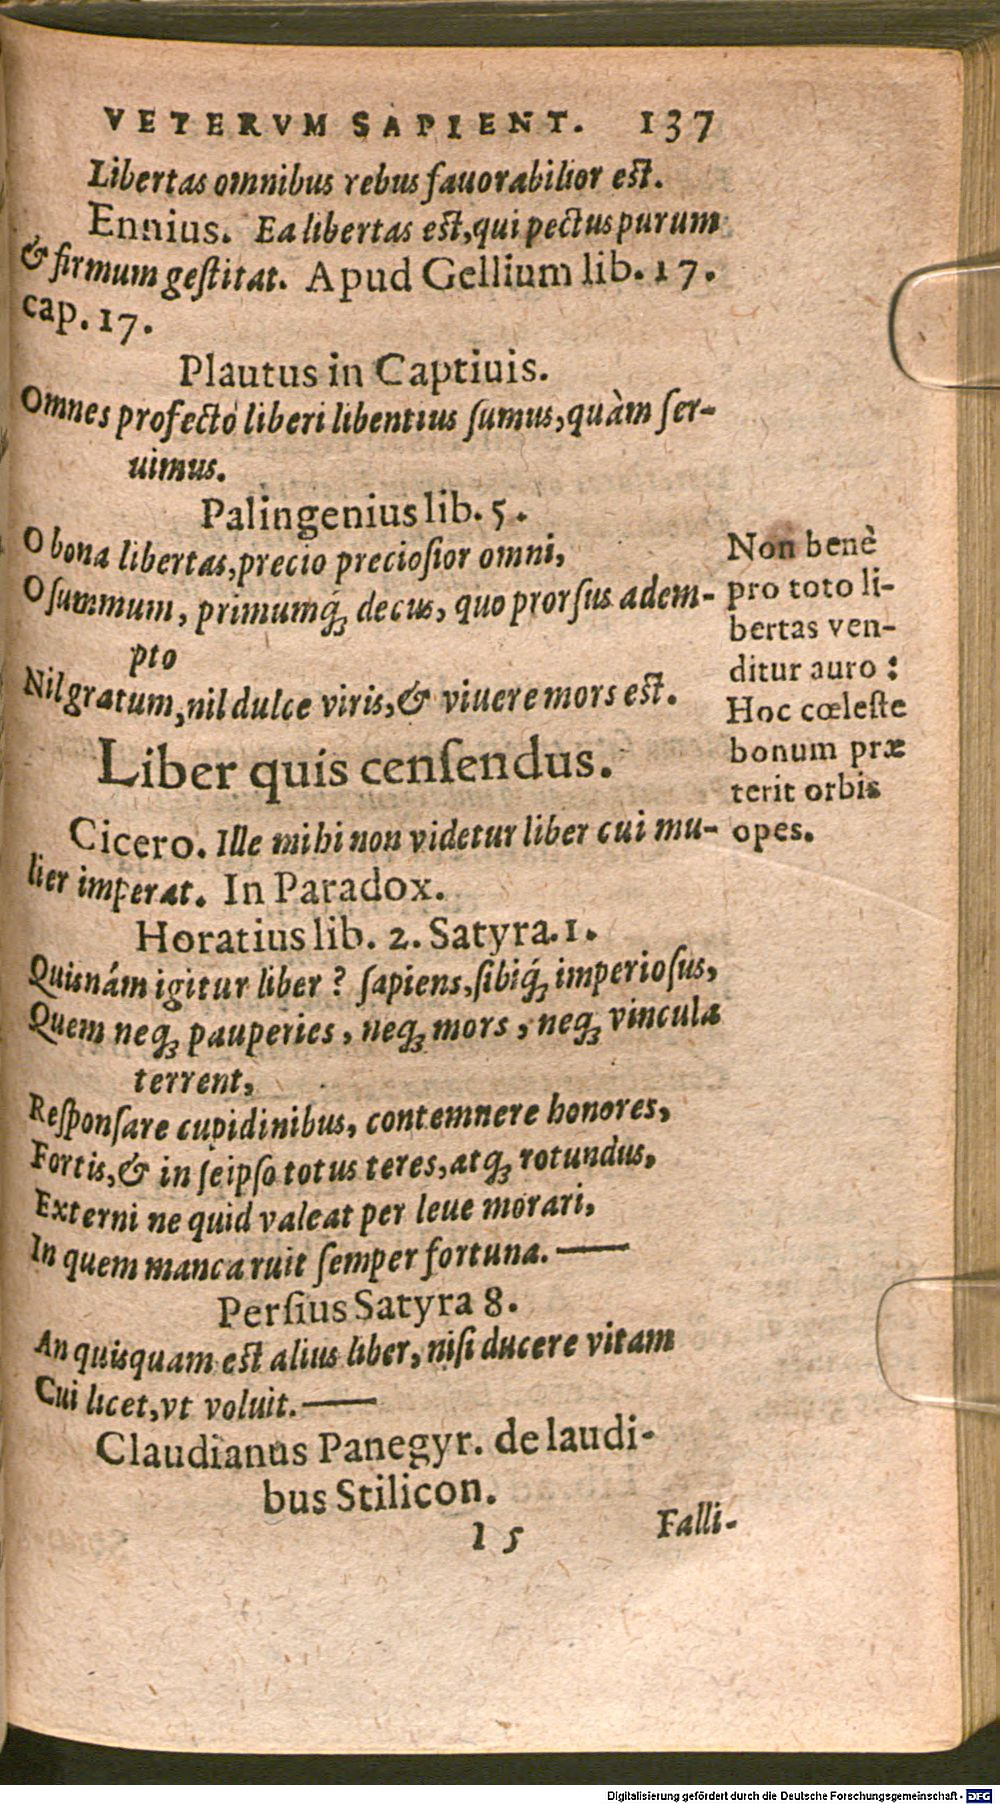 VETERVM SAPIENT. 137
Libertas omnibus rebus fauorabilior est.
Ennius. Ea libertas est, qui pectus purum
& firmum gestitat. Apud Gellium lib. 17.
cap. 17.
Plautus in Captiuis.
Omnes profectò liberi libentius sumus, quàm ser-
uimus.
Palingenius lib. 5.
O bona libertas, precio preciosior omni,
O summum, primumq́ꝫ decus, quo prorsus adem-
pto
Nil gratum, nil dulce viris, & viuere mors est.
Non benè
pro toto li-
bertas ven-
ditur auro:
Hoc cœleste
bonum præ
terit orbis
opes.
Liber quis censendus.
Cicero. Ille mihi non videtur liber cui mu-
lier imperat. In Paradox.
Horatius lib. 2. Satyra. 1.
Quisnám igitur liber? sapiens, sibiq́ꝫ imperiosus,
Quem neqꝫ pauperies, neqꝫ mors, neqꝫ vincula
terrent,
Responsare cupidinibus, contemnere honores,
Fortis, & in seipso totus teres, atqꝫ rotundus,
Externi ne quid valeat per leue morari,
In quem manca ruit semper fortuna. —
Persius Satyra 8.
An quisquam est alius liber, nisi ducere vitam
Cui licet, vt voluit. —
Claudianus Panegyr. de laudi-
bus Stilicon.
I 5 Falli-
Digitalisierung gefördert durch die Deutsche Forschungsgemeinschaft - DFG